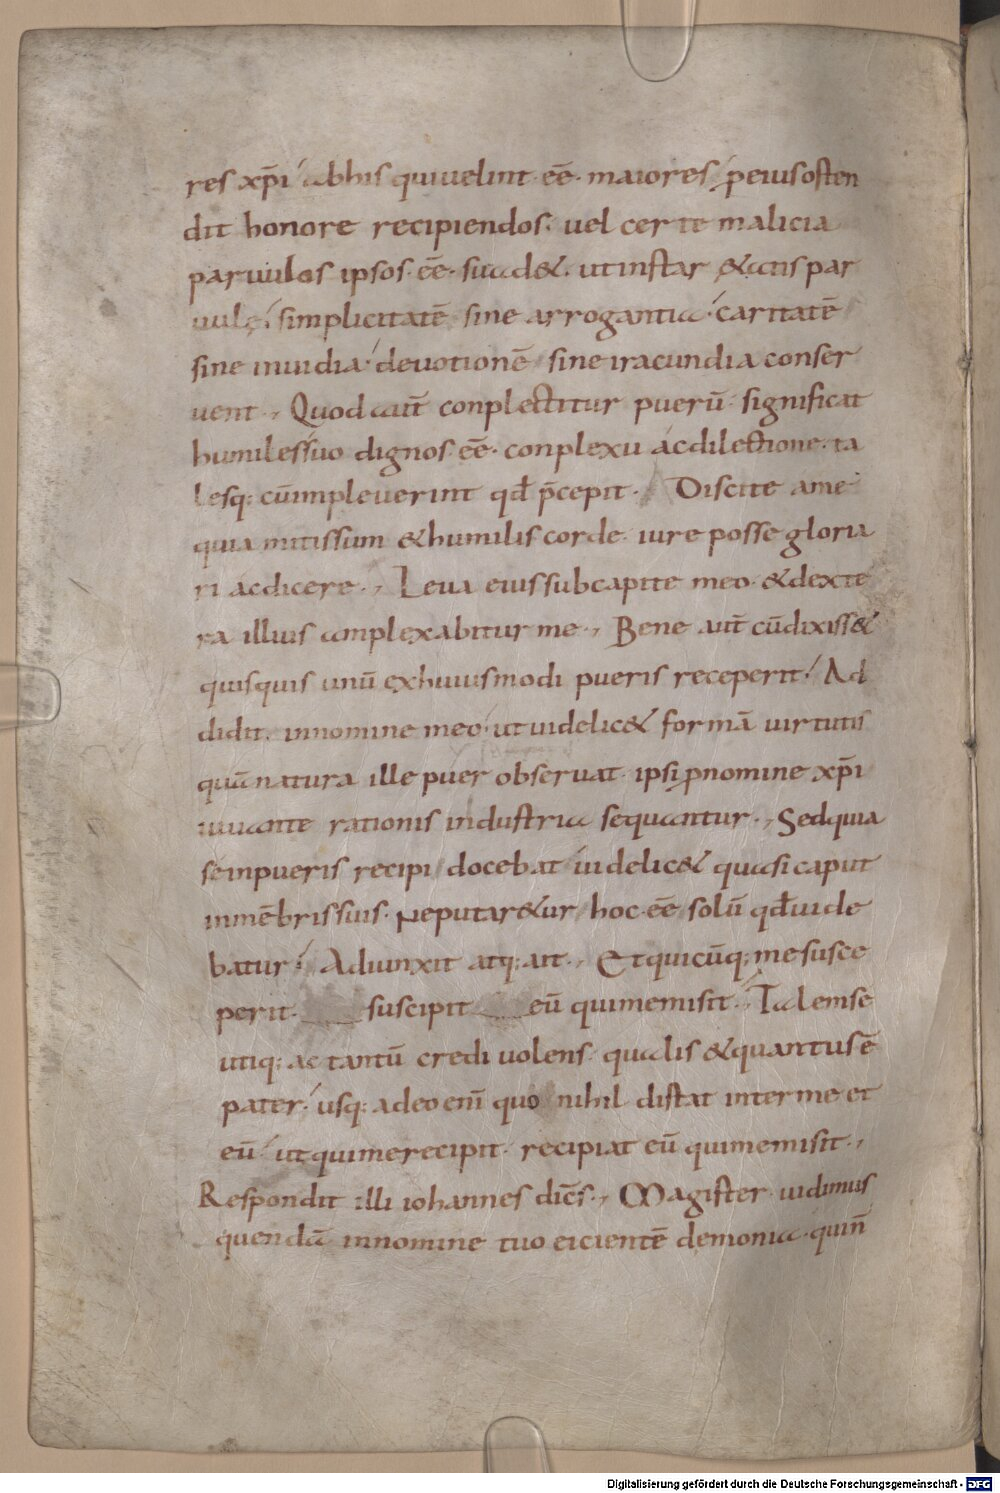 res xp̄i abhis quiuelint· eē· maiores p̱eiusosten
dit honore recipiendos· uel certe malicia
paruulos ipsos· eē· suad&· utinstar &atis par
uulę simplicitatē sine arrogantia· caritatē
sine inuidia deuotionē sine iracundia conser
uent·, Quod aut̄ conplectitur puerū· significat
humilessuo dignos eē· conplexu acdilectione· ta
lesq; cūimpleuerint qd̄ p̄cepit· Discite ame
quia mitissum &humilis corde· iure posse gloria
ri acdicere·, Leua eiussubcapite meo· &dexte
ra illius amplexabitur me·, Bene aut̄ cūdixiss&
quisquis unū exhuiusmodi pueris receperit· Ad
didit· innomine meo· utuidelic& formā uirtutis
quā natura ille puer obseruat· ipsi p̱nomine xp̄i
iuuante rationis industria sequantur·, Sedquia
se inpueris recipi docebat uidelic& quasi caput
inmēbrissuis· Neputar&ur hoc· eē solū qd̄uide
batur· Adiunxit atq; ait·, Etquicūq; mesusce
perit· suscipit eū quimemisit·, Talemse
utiq; ac tantū credi uolens· qualis &quantus ē
pater· usq; adeo eni̅ quo nihil distat inter me et
eū utquimerecipit· recipiat eū quimemisit·,
Respondit illi iohannes dic̄s·, Magister uidimus
quendā innomine tuo eicientē demonia· quin̄
Digitalisierung gefördert durch die Deutsche Forschungsgemeinschaft - DFG